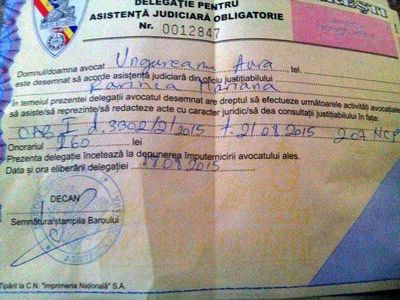 DELEGAȚIE PENTRU
ASISTENȚĂ JUDICIARĂ OBLIGATORIE
Nr. 0012847
Domnul/doamna avocat Ungureanu Aura, tel.
este desemnat să acorde asistență judiciară din oficiu justițiabilului
Mariana
În temeiul prezentei delegații avocatul desemnat are dreptul să efectueze următoarele activități avocațiale
să asiste/să reprezinte/să redacteze acte cu caracter juridic/să dea consultații justițiabilului în fața:
CAB I d. 3302/2/2015 t. 21.08.2015 207 NCPP
Onorariul 260 lei
Prezenta delegație încetează la depunerea împuternicirii avocatului ales.
Data și ora eliberării delegației 19.08.2015
DECAN
Semnătura/ștampila Baroului
Tipărit la C.N. "Imprimeria Națională" S.A.